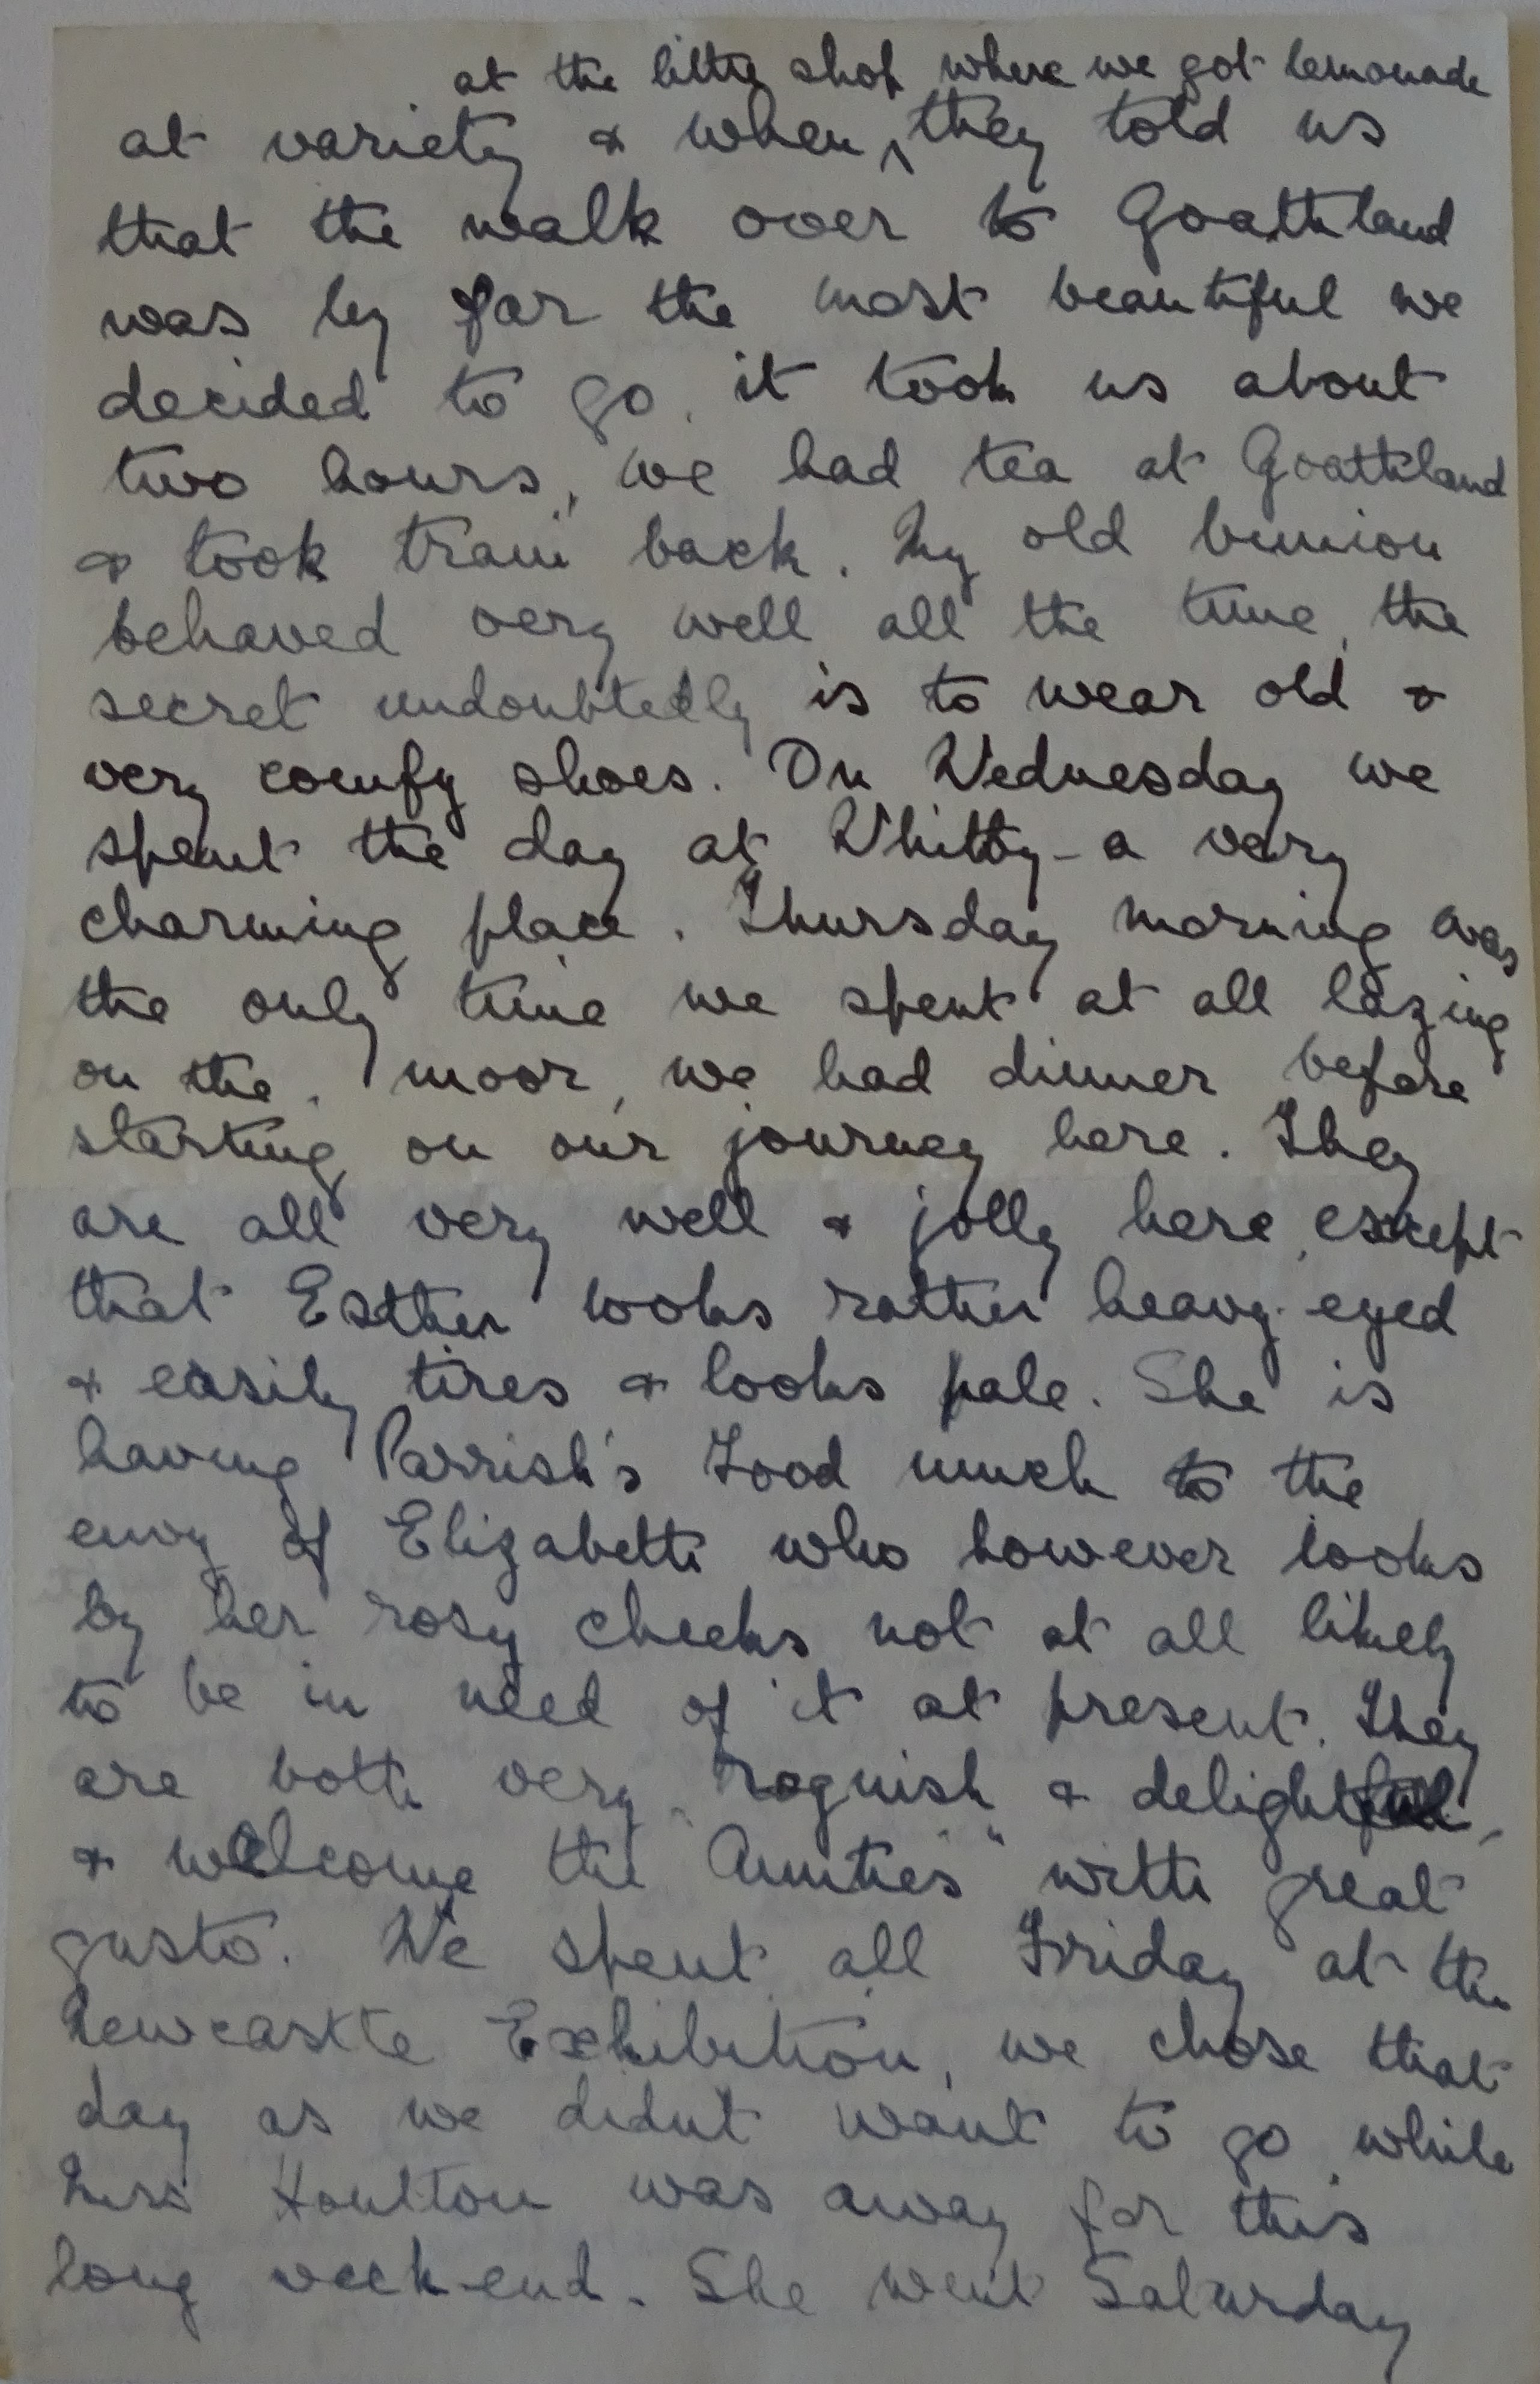 at the little shop where we got lemonade
at variety & when ^ they told us
that the walk over to Goathland
was by far the most beautiful we
decided to go, it took us about
two hours, we had tea at Goathland
& took train back. My old bunion
behaved very well all the time, the
secret undoubtedly is to wear old &
very comfy shoes. On Wednesday we
spent the day at Whitby - a very
charming place. Thursday morning was
the only time we spent at all lazing
on the moor, we had dinner before
starting on our journey here. They
are all very well & jolly here, except
that Esther looks rather heavy-eyed
& easily tires & looks pale. She is
having Parrish's Food much to the
envy of Elizabeth who however looks
by her rosy cheeks not at all likely
to be in need of it at present. They
are both very roguish & delightful,
& welcome the "Aunties" with great
gusto. We spent all Friday at the
Newcastle Exhibition, we chose that
day as we didnt want to go while
Miss Houlton was away for this
long week-end. She went Saturday